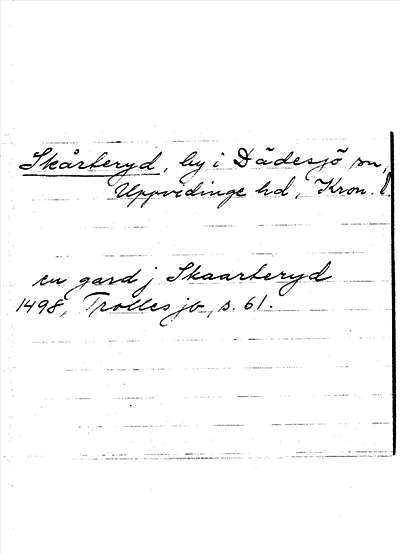 Skårteryd, by i Dädesjö sn,
Uppvidinge hd, Kron. l.
en gard j Skaarteryd
1498, Trolles jb, s. 61.